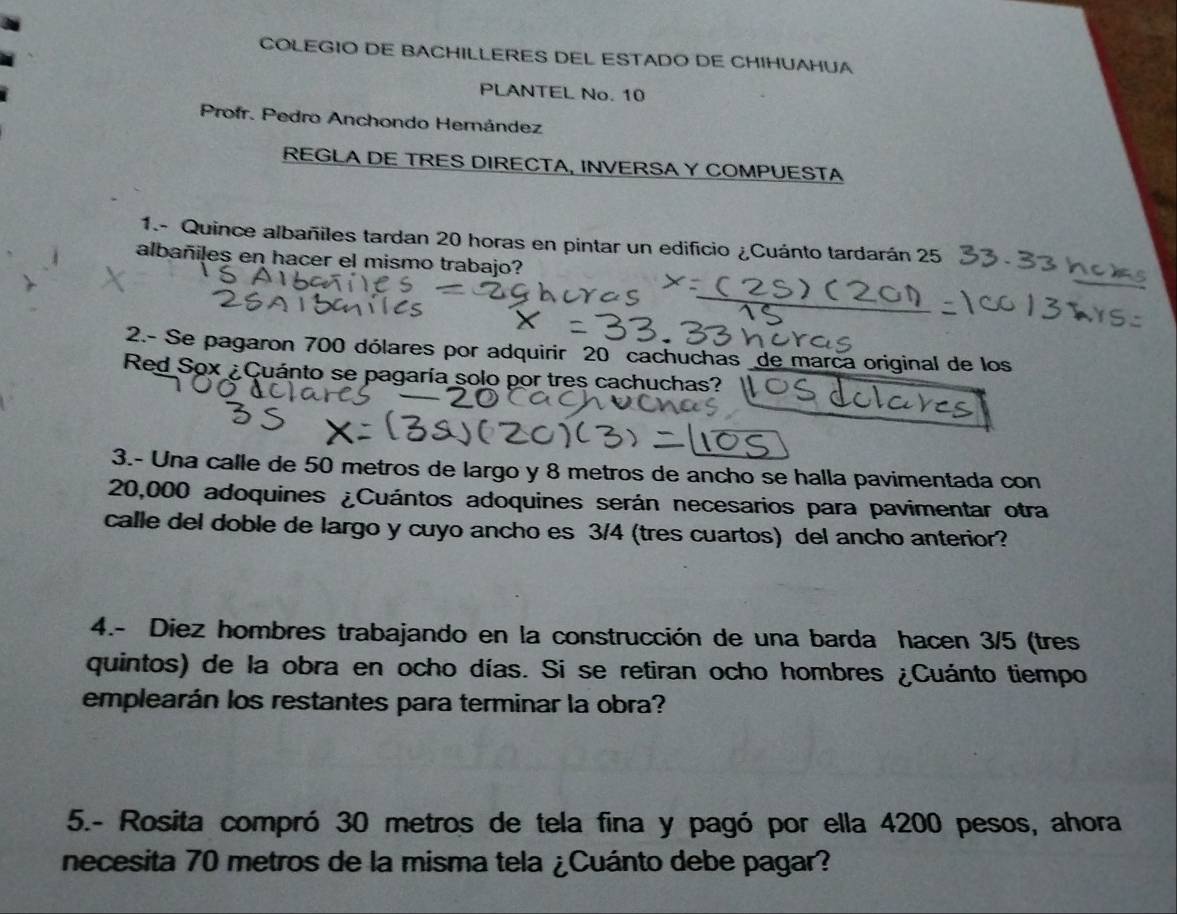 COLEGIO DE BACHILLERES DEL ESTADO DE CHIHUAHUA
PLANTEL No. 10
Profr. Pedro Anchondo Hernández
REGLA DE TRES DIRECTA, INVERSA Y COMPUESTA
1.- Quince albañiles tardan 20 horas en pintar un edificio ¿Cuánto tardarán 25 33.33 horas
albañiles en hacer el mismo trabajo?
15 Albañiles = 20 horas x = (25)(20)
25 Albañiles x = 33.33 horas 15
2.- Se pagaron 700 dólares por adquirir 20 cachuchas de marca original de los
Red Sox ¿Cuánto se pagaría solo por tres cachuchas? 105 dolares
700 dolares — 20 cachuchas
35 x = (35)(20)(3) = 105
3.- Una calle de 50 metros de largo y 8 metros de ancho se halla pavimentada con
20,000 adoquines ¿Cuántos adoquines serán necesarios para pavimentar otra
calle del doble de largo y cuyo ancho es 3/4 (tres cuartos) del ancho anterior?
4.- Diez hombres trabajando en la construcción de una barda hacen 3/5 (tres
quintos) de la obra en ocho días. Si se retiran ocho hombres ¿Cuánto tiempo
emplearán los restantes para terminar la obra?
5.- Rosita compró 30 metros de tela fina y pagó por ella 4200 pesos, ahora
necesita 70 metros de la misma tela ¿Cuánto debe pagar?